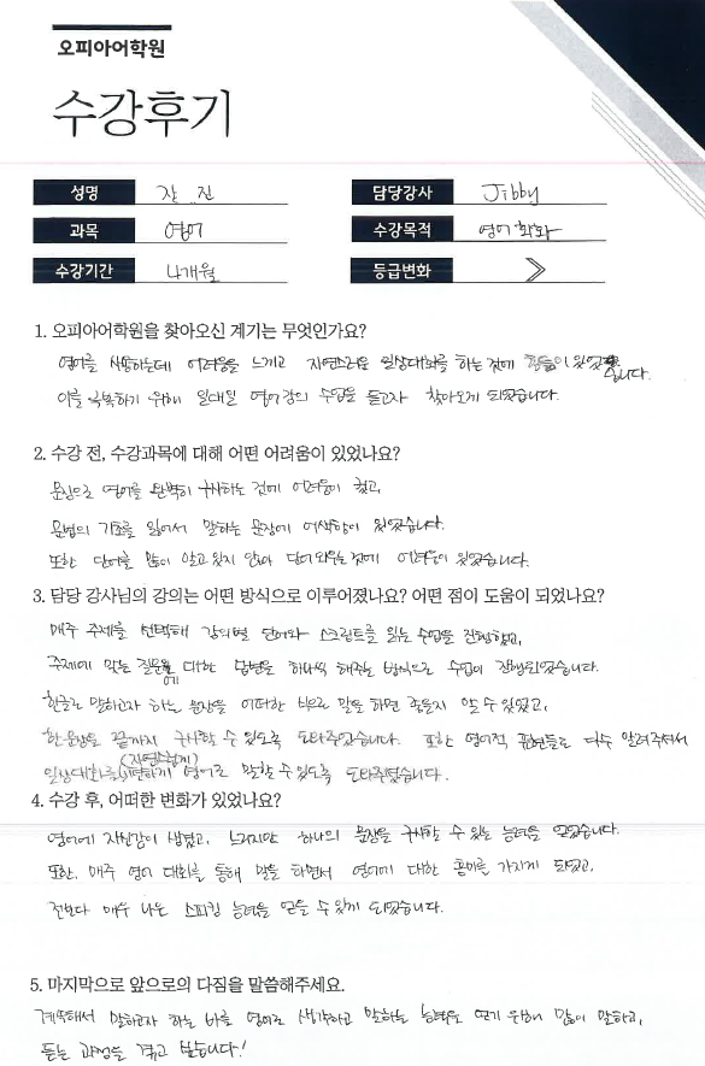 오피아어학원
수강후기
성명 장 진
담당강사 Jibby
과목 영어
수강목적 영어회화
수강기간 4개월
등급변화
1. 오피아어학원을 찾아오신 계기는 무엇인가요?
영어를 사용하는데 어려움을 느끼고 자연스러운 일상대화를 하는 것에 힘듦이 있었습니다.
이를 극복하기 위해 일대일 영어강의 수업을 듣고자 찾아오게 되었습니다.
2. 수강 전, 수강과목에 대해 어떤 어려움이 있었나요?
문장으로 영어를 완벽히 구사하는 것에 어려움이 컸고,
문법의 기초를 잃어서 말하는 문장에 어색함이 있었습니다.
또한 단어를 많이 알고 있지 않아 단어 외우는 것에 어려움이 있었습니다.
3. 담당 강사님의 강의는 어떤 방식으로 이루어졌나요? 어떤 점이 도움이 되었나요?
매주 주제를 선택해 강의별 단어와 스크립트를 읽는 수업을 진행했고,
주제에 맞는 질문에 대한 답변을 하나씩 해주는 방식으로 수업이 진행되었습니다.
한글로 말하고자 하는 문장을 어떠한 식으로 말을 하면 좋을지 알 수 있었고,
한문장을 끝까지 구사할 수 있도록 도와주었습니다. 또한 영어적 표현들도 다수 알려주셔서
일상대화를 (자연스럽게) 편하게 영어로 말할 수 있도록 도와주셨습니다.
4. 수강 후, 어떠한 변화가 있었나요?
영어에 자신감이 생겼고, 느리지만 하나의 문장을 구사할 수 있는 능력을 얻었습니다.
또한, 매주 영어 대화를 통해 말을 하면서 영어에 대한 흥미를 가지게 되었고,
전보다 매우 나은 스피킹 능력을 얻을 수 있게 되었습니다.
5. 마지막으로 앞으로의 다짐을 말씀해주세요.
계속해서 말하고자 하는 바를 영어로 생각하고 말하는 능력을 얻기 위해 많이 말하고,
듣는 과정을 겪고 싶습니다!